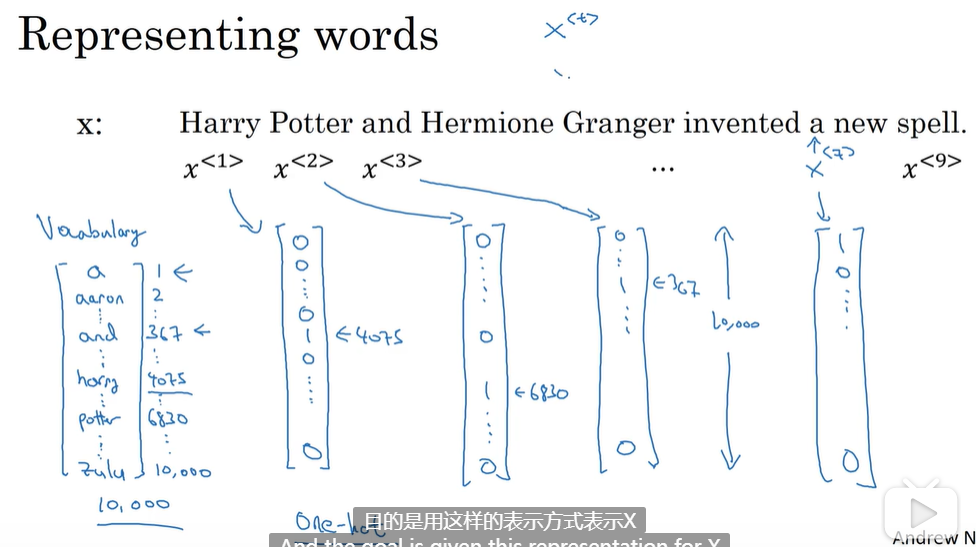 Representing words
x<t>
x: Harry Potter and Hermione Granger invented a new spell.
x<1> x<2> x<3> ... x<7> x<9>
Vocabulary
a 1
aaron 2
and 367
harry 4075
potter 6830
zulu 10,000
10,000
0
0
0
1 ←4075
0
0
0
0
1 ←6830
0
0
1 ←367
0
10,000
1
0
0
One-hot
目的是用这样的表示方式表示X
And the goal is given this representation for X
Andrew N